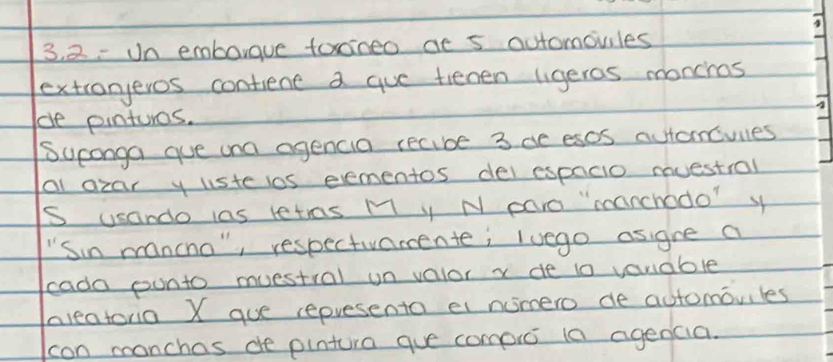 3.2.- Un embarque foráneo de 5 automóviles
extranjeros contiene 2 que tienen ligeros manchas
de pinturas.
Suponga que una agencia recibe 3 de esos automóviles
al azar y liste los elementos del espacio muestral
S usando las letras M y N para "manchado" y
"sin mancha", respectivamente; luego asigne a
cada punto muestral un valor x de la variable
aleatoria X que representa el número de automóviles
con manchas de pintura que compró la agencia.